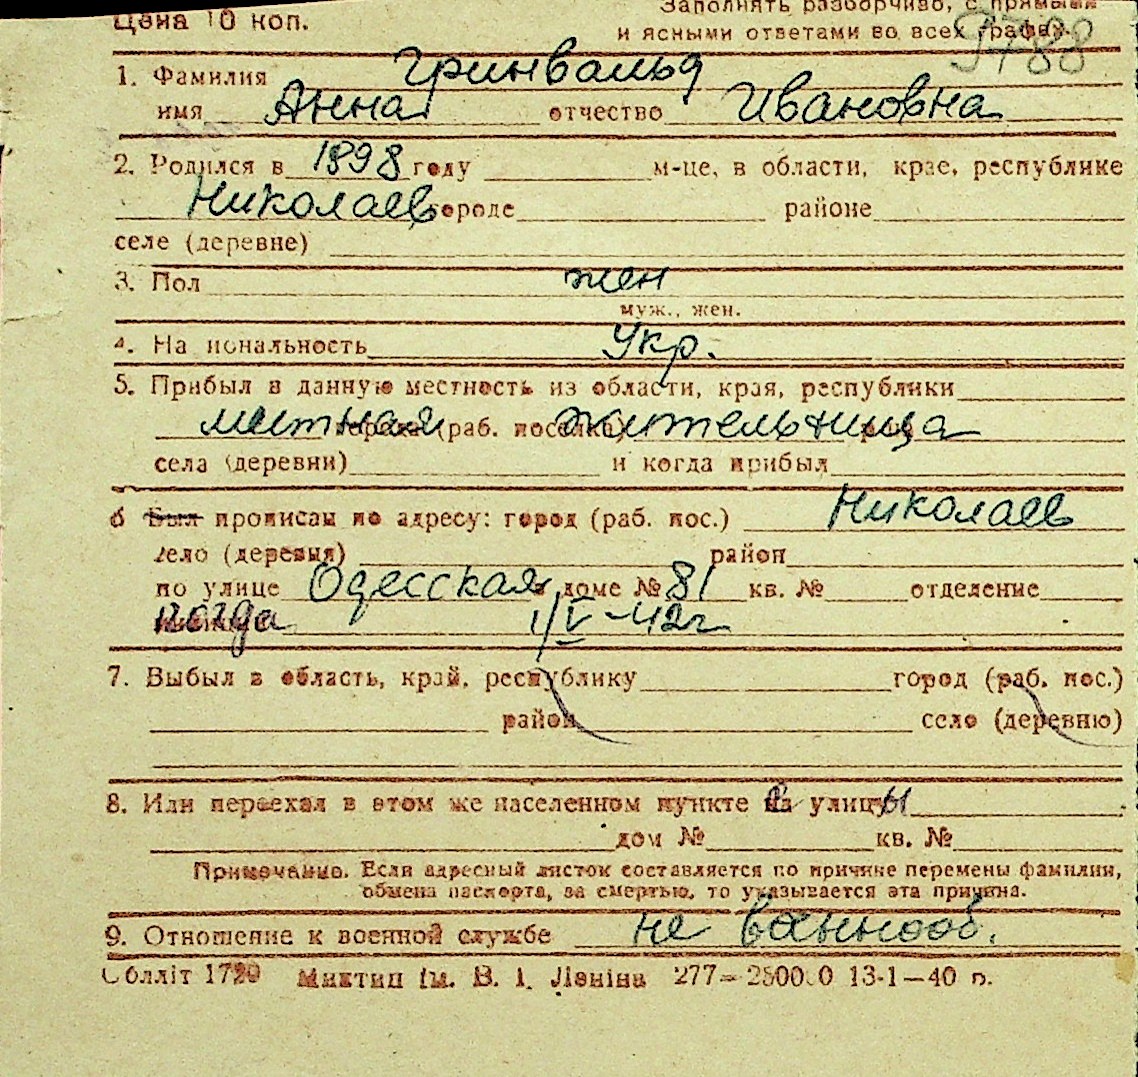 Цена 10 коп. Заполнять разборчиво, с прямыми
и ясными ответами во всех графах.
9788
1. Фамилия Гринвальд
имя Анна отчество Ивановна
2. Родился в 1898 году м-це, в области, крае, республике
Николаев городе районе
селе (деревне)
3. Пол жен
муж., жен.
4. На иональность Укр.
5. Прибыл в данную местность из области, края, республики
местная города (раб. поселка) жительница
села (деревни) и когда прибыл
6 Был прописан по адресу: город (раб. пос.) Николаев
село (деревня) район
по улице Одесская в доме № 81 кв. № отделение
когда 1/V-42г
7. Выбыл в область, край, республику город (раб. пос.)
район село (деревню)
8. Или переехал в этом же населенном пункте с улицы
дом № кв. №
Примечание. Если адресный листок составляется по причине перемены фамилии,
обмена паспорта, за смертью, то указывается эта причина.
9. Отношение к военной службе не ваннооб.
Облліт 1720 Миктип ім. В. І. Леніна 277—250000 13-1—40 р.